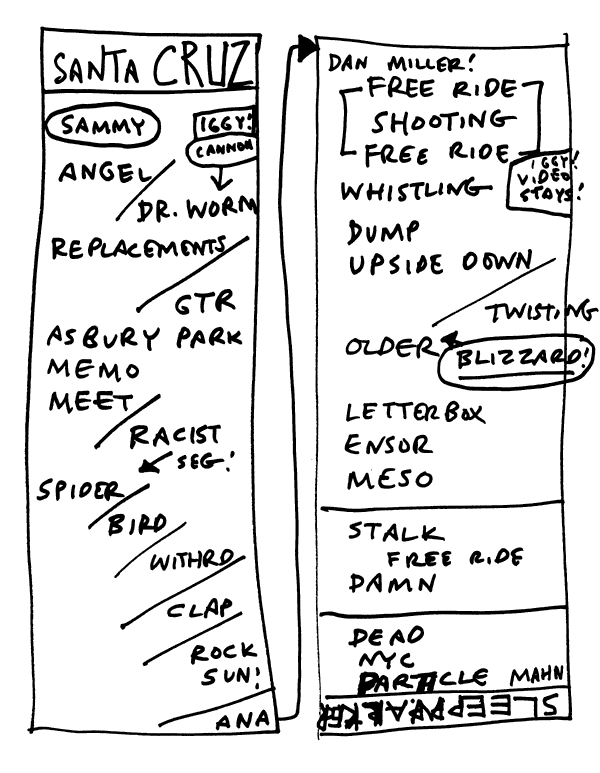 SANTA CRUZ
SAMMY
IGGY!
CANNON
ANGEL
DR. WORM
REPLACEMENTS
GTR
ASBURY PARK
MEMO
MEET
RACIST
SEG!
SPIDER
BIRD
WITHRD
CLAP
ROCK
SUN!
ANA
DAN MILLER!
FREE RIDE
SHOOTING
FREE RIDE
IGGY!
VIDEO
STAYS!
WHISTLING
DUMP
UPSIDE DOWN
TWISTING
OLDER
BLIZZARD!
LETTERBOX
ENSOR
MESO
STALK
FREE RIDE
DAMN
DEAD
NYC
PARTICLE MAHN
SLEEPWALKER